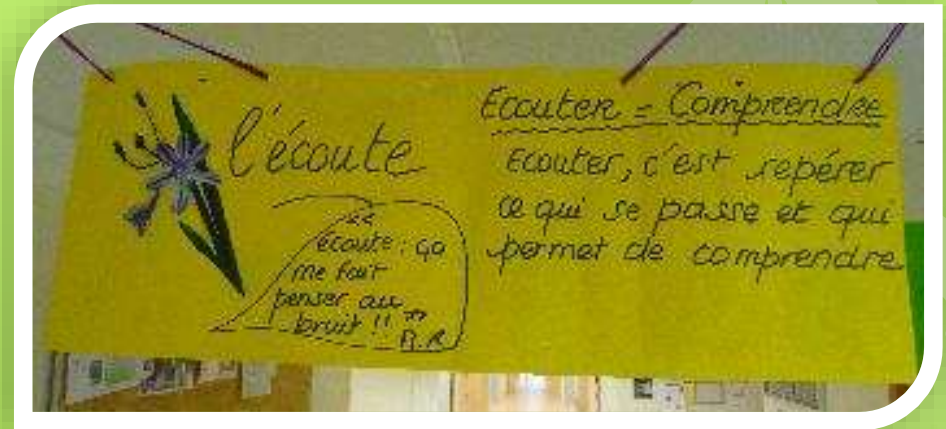 l'écoute
"
écoute : ça
me fait
penser au
bruit !! "
R.R
Ecouter = Comprendre
Ecouter, c'est repérer
ce qui se passe et qui
permet de comprendre